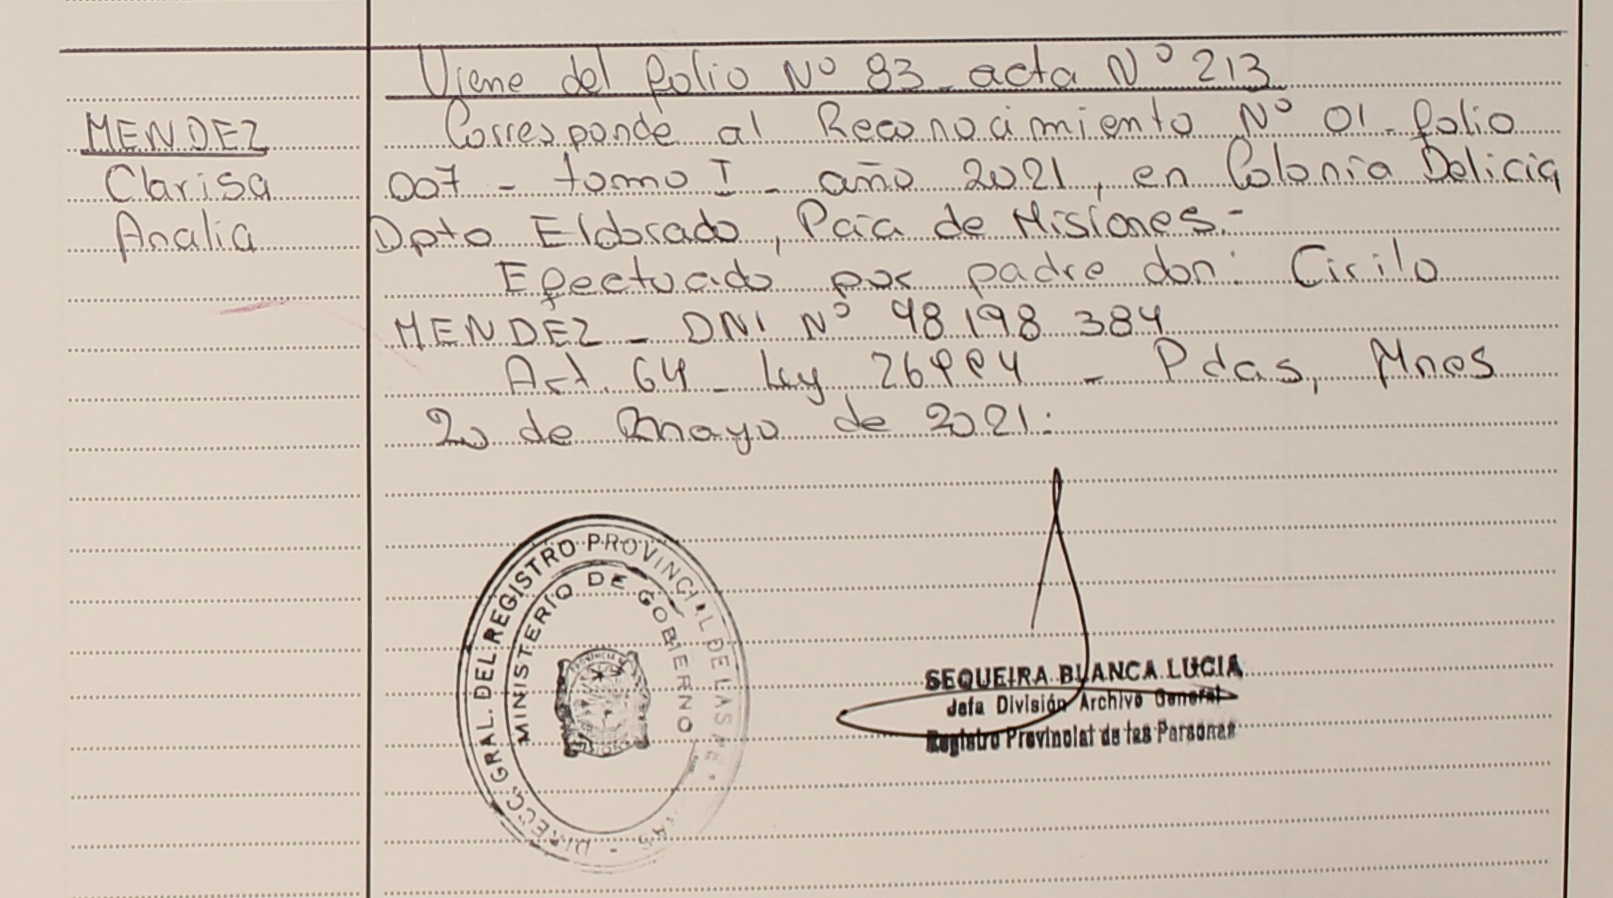 Viene del folio Nº 83 - acta Nº 213
MENDEZ
Clarisa
Analia
Corresponde al Reconocimiento Nº 01 - folio
007 - tomo I - año 2021, en Colonia Delicia
Dpto Eldorado, Pcia de Misiones.-
Efectuado por padre don: Cirilo
MENDEZ - DNI Nº 48 198 384
Art. 64 - Ley 26994 - Pdas, Mnes
20 de mayo de 2021:
DIRECC. GRAL. DEL REGISTRO PROVINCIAL DE LAS
MINISTERIO DE GOBIERNO
SEQUEIRA BLANCA LUCIA
Jefa División Archivo General
Registro Provincial de las Personas